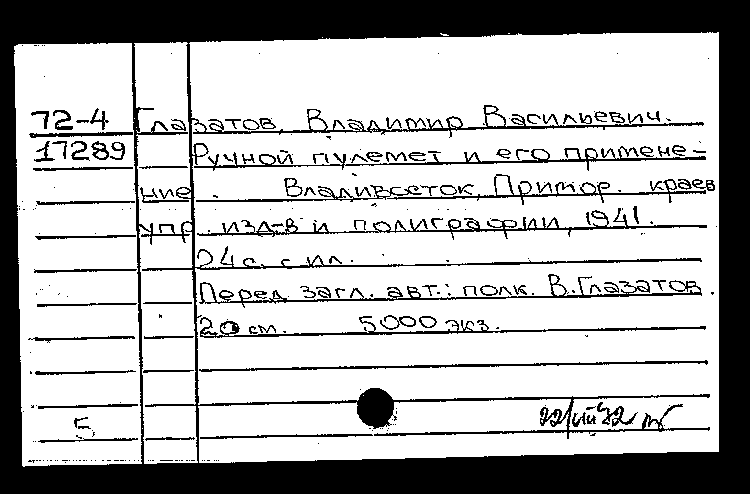 72-4 Глазатов, Владимир Васильевич.
17289 Ручной пулемет и его примене-
ние. Владивсеток, Примор. краев
упр. изд-в и полиграфии, 1941.
24 с. с ил.
Перед загл. авт.: полк. В.Глазатов.
20 см. 5000 экз.
5